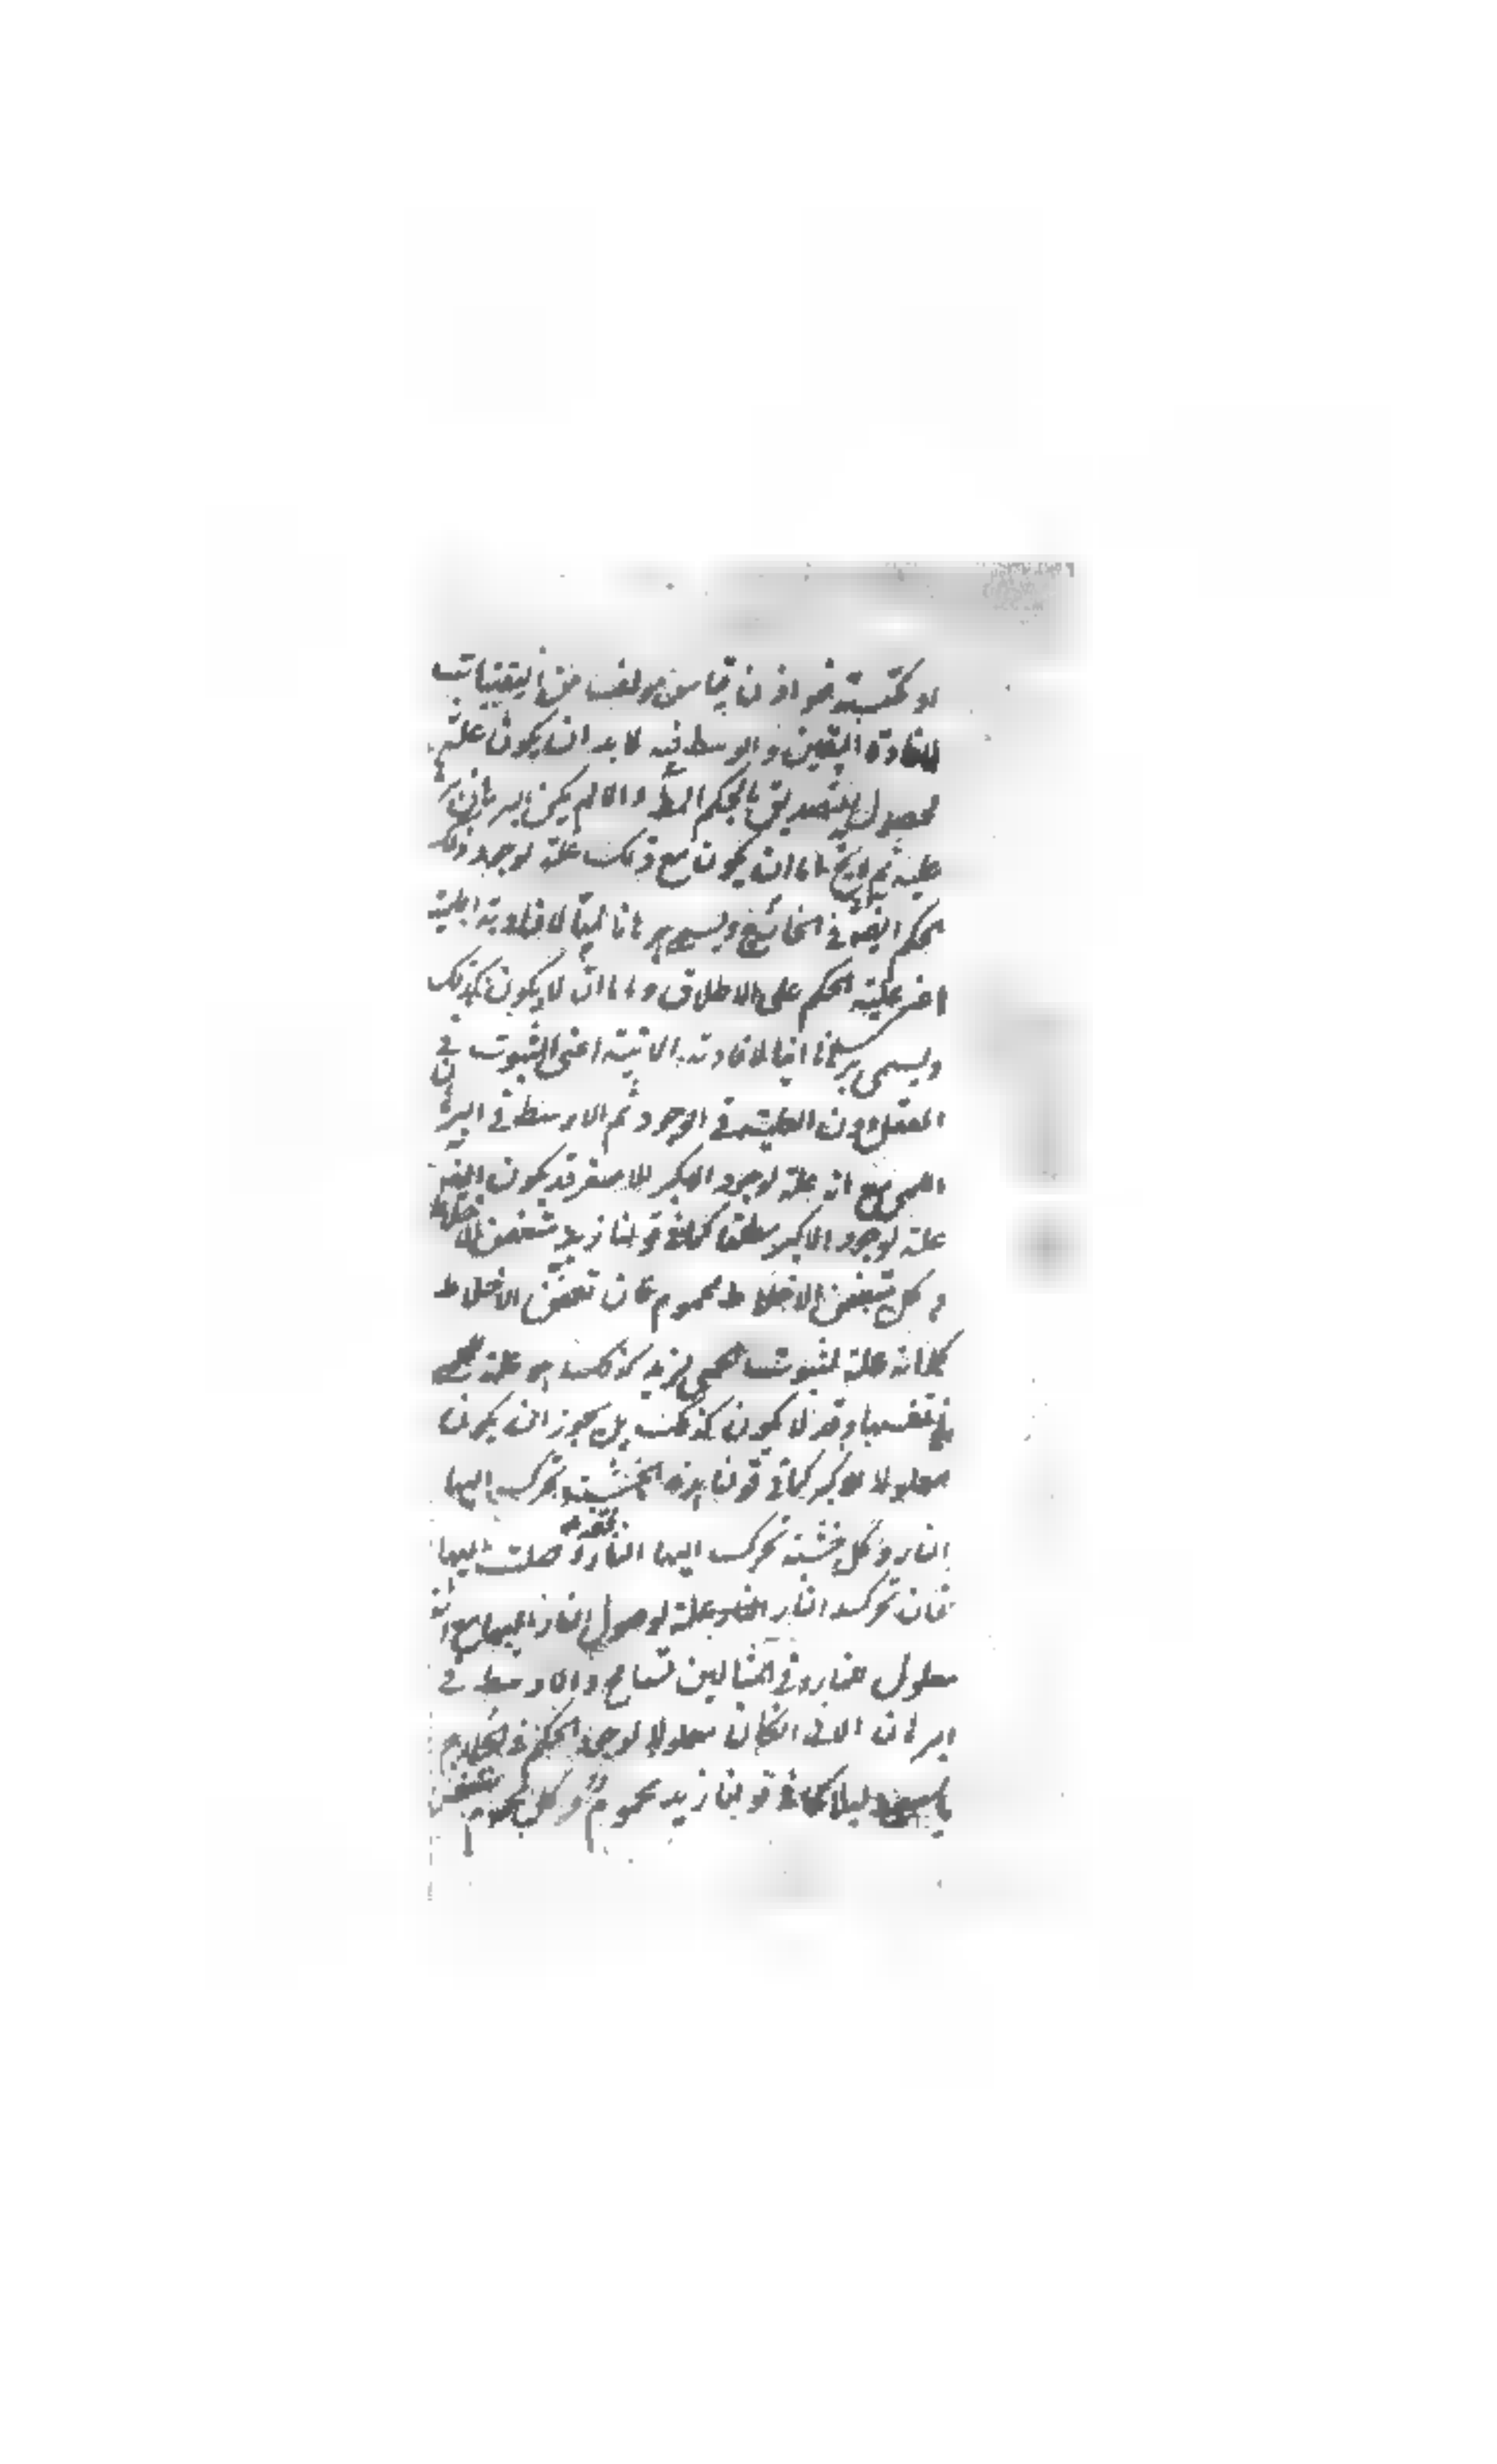 او مكتسبة فهو اذن قياس مولف من اليقينيات
لافادة اليقين والوسط فيه لا بد ان يكون علة
لحصول التصديق بالحكم المط والا لم يكن البرهان
عليه ثم لايخ اما ان يكون مع ذلك علة لوجود ذلك
الحكم ايضا في الخارج ويسمى برهانا لميا لافادته اللمية
اعنى علية الحكم على الاطلاق واما ان لا يكون كذلك
ويسمى برهانا انيا لافادته الانية اعنى الثبوت في
العقل دون العلية في الوجود ثم الاوسط في البرهان
اللمى مع انه علة لوجود الاكبر للاصغر قد يكون ايضا
علة لوجود الاكبر مطلقا كما في قولنا زيد متعفن الاخلاط
وكل متعفن الاخلاط محموم فان تعفن الاخلاط
كما انه علة لثبوت الحمى لزيد كذلك هو علة للحمى
في نفسها وقد لا يكون كذلك بل يجوز ان يكون
معلولا للاكبر كما في قولنا هذه الخشبة تحرك اليها
النار وكل خشبة تحرك اليها النار فقد وصلت اليها
فان تحرك النار علة لوصول النار اليها مع انه
معلول للنار وفي المثالين تسامح والاوسط في
برهان الانى ان كان معلولا لوجود الحكم في الخارج
يسمى دليلا كما في قولنا زيد محموم وكل محموم متعفن